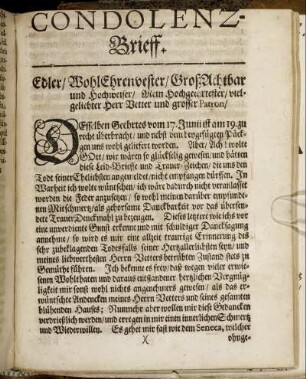 CONDOLENZ-
Brieff.
Edler/ WohlEhrenvester/ GroßAchtbar
und Hochweiser/ Mein Hochgeehrtester/ viel-
geliebter Herr Vetter und grosser Patron/
DEsselben Geehrtes vom 17. Junii ist am 19. zu
recht überbracht/ und nebst dem beygefügten Päck-
gen uns wohl geliefert worden. Aber/ Ach! wolte
GOtt/ wir wären so glückselig gewesen/ und hätten
diese Leid-Brieffe und Trauer-Zeichen/ die uns den
Todt seiner Eheliebsten angemeldet/ nicht empfangen dürffen. In
Warheit ich wolte wünschen/ ich wäre dadurch nicht veranlasset
worden die Feder anzusetzen/ so wohl meinen darüber empfunde-
nen Mitschmertz/ als gehorsame Danckbarkeit vor das übersen-
dete Trauer-Denckmahl zu bezeugen. Dieses letztere wie ichs vor
eine unverdiente Gunst erkenne und mit schuldiger Dancksagung
annehme/ so wird es mir eine allzeit traurige Erinnerung des
sehr zubeklagenden Todesfalls seiner Hertzallerliebsten seyn/ und
meines liebwerthesten Herrn Vetters betrübten Zustand stets zu
Gemüthe führen. Ich bekenne es frey/ daß wegen vieler erwie-
senen Wohlthaten und daraus entstandener hertzlichen Vergnü-
gligkeit mir sonst wohl nichts angenehmers gewesen/ als das er-
wünschte Andencken meines Herrn Vetters und seines gesamten
blühenden Hauses; Nunmehr aber wollen mir diese Gedancken
verdrießlich werden/ und erregen in mir einen innerlichen Schmertz
und Wiederwillen. Es gehet mir fast wie dem Seneca, welcher
X ohnge-